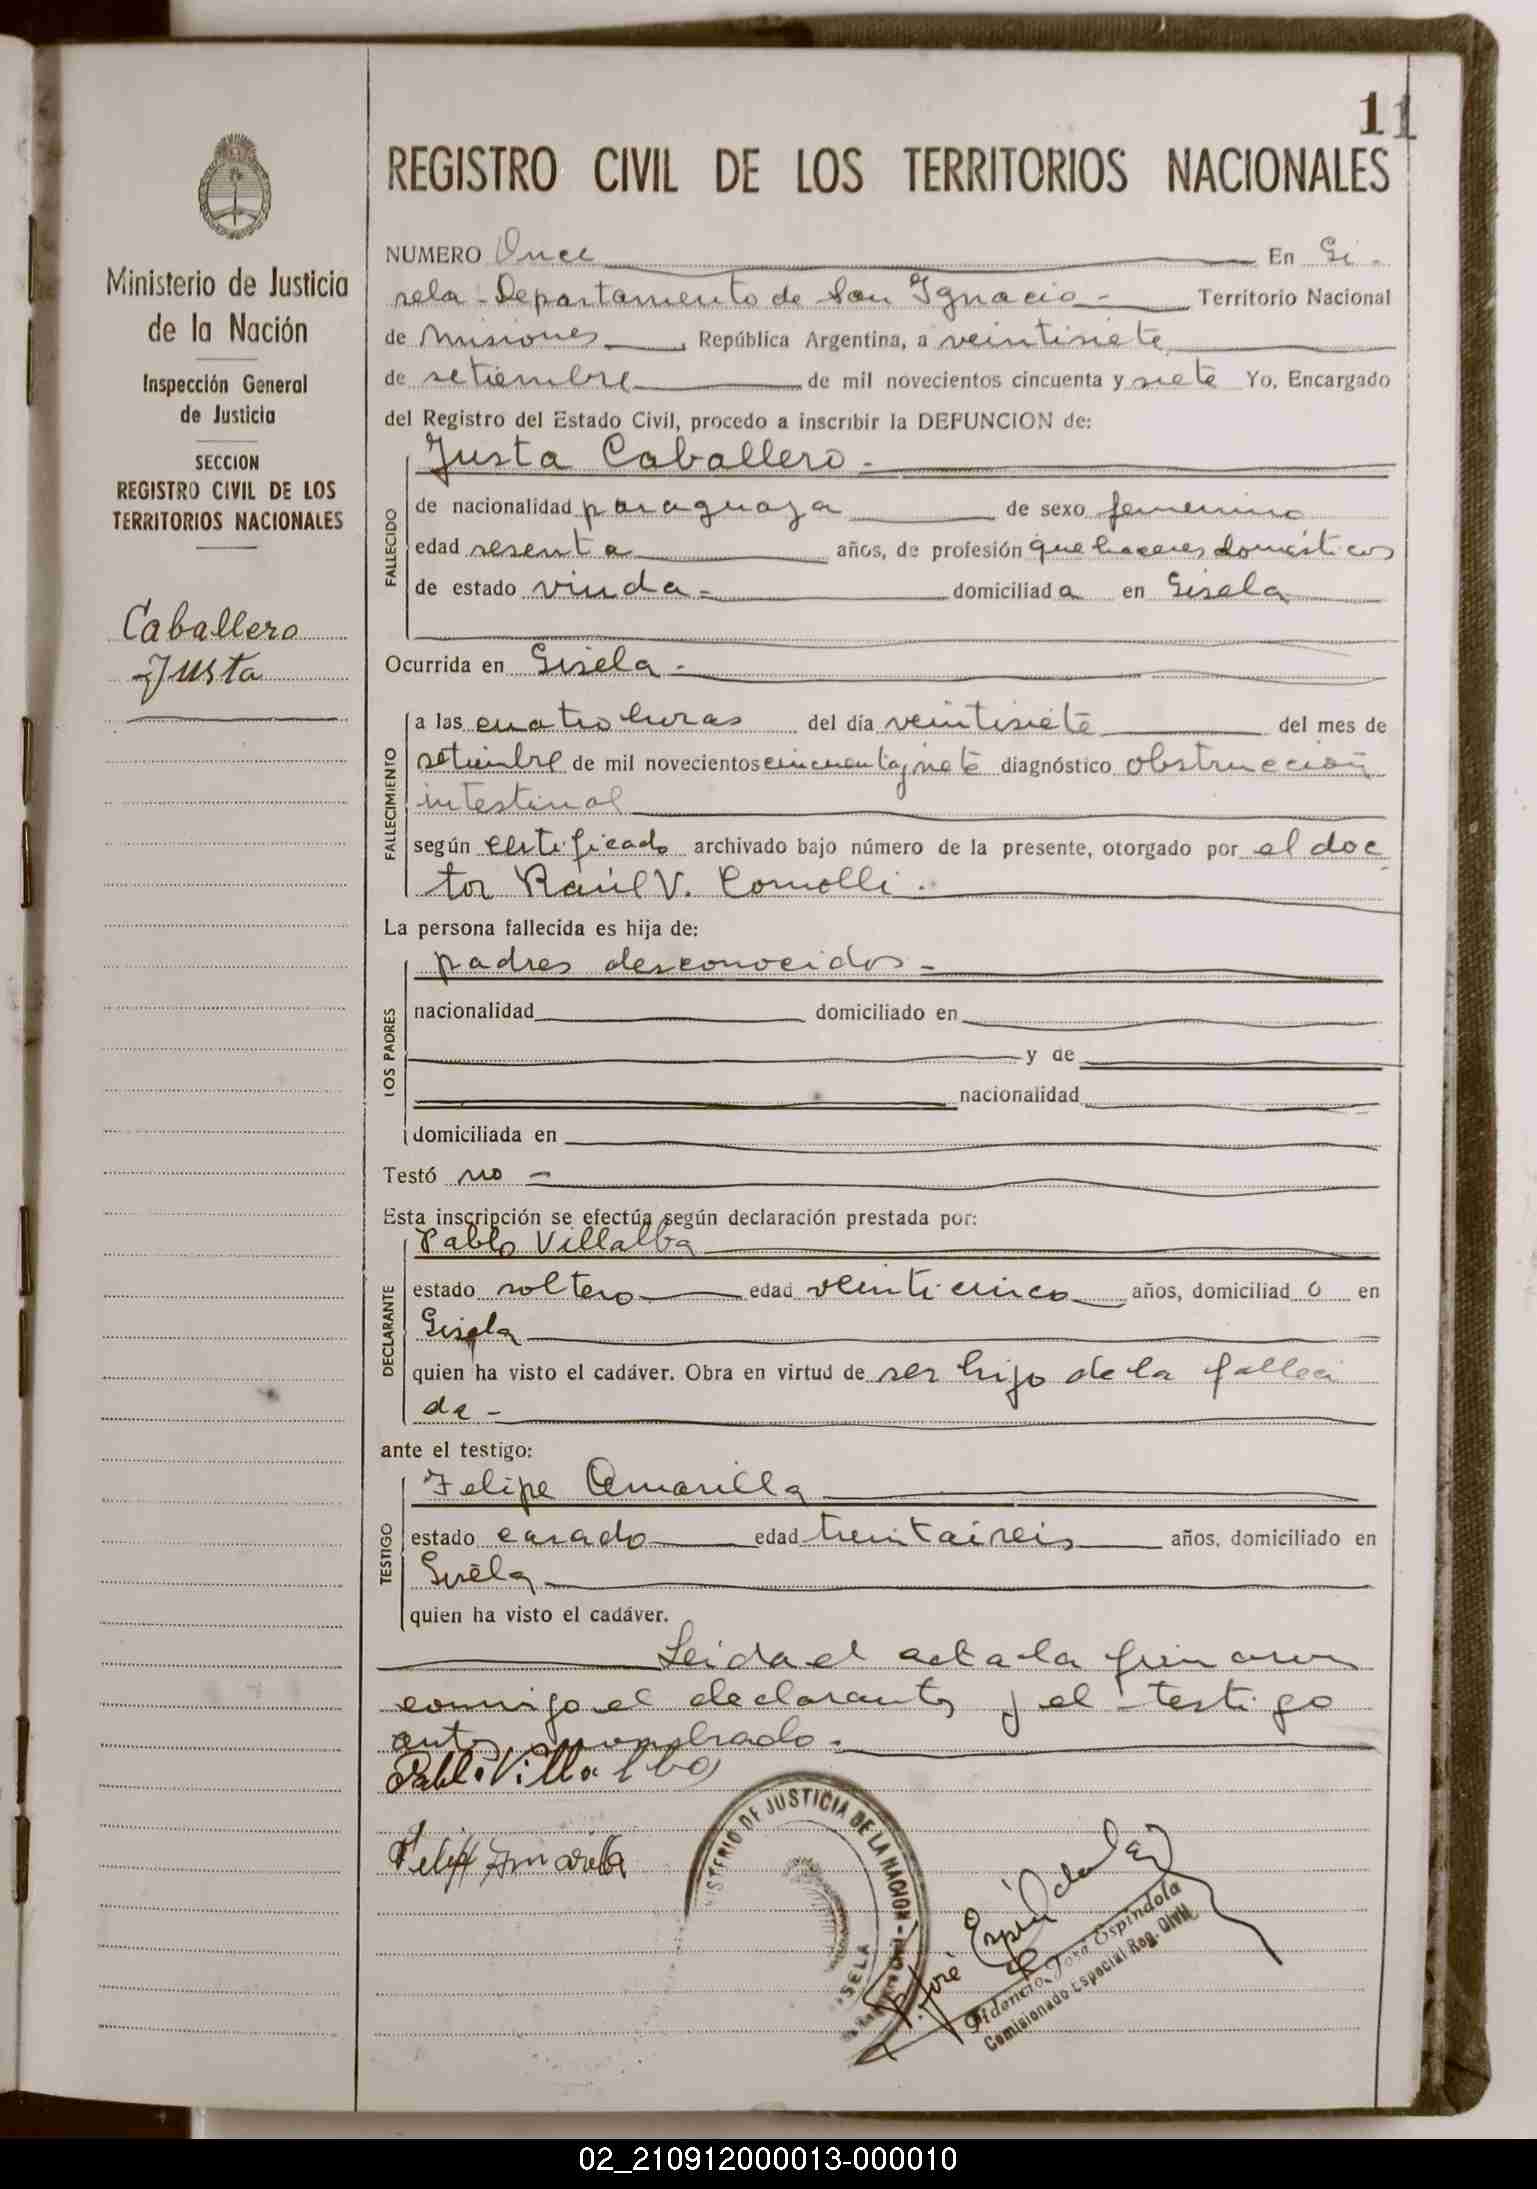 11
REGISTRO CIVIL DE LOS TERRITORIOS NACIONALES
Ministerio de Justicia
de la Nación
Inspección General
de Justicia
SECCION
REGISTRO CIVIL DE LOS
TERRITORIOS NACIONALES
Caballero
Justa
NUMERO Once En Gi-
sela - Departamento de San Ignacio - Territorio Nacional
de Misiones, República Argentina, a veintisiete
de setiembre de mil novecientos cincuenta y siete Yo, Encargado
del Registro del Estado Civil, procedo a inscribir la DEFUNCION de:
Justa Caballero -
FALLECIDO
de nacionalidad paraguaya de sexo femenino
edad sesenta años, de profesión quehaceres domésticos
de estado viuda - domiciliada en Gisela
Ocurrida en Gisela -
FALLECIMIENTO
a las cuatro horas del día veintisiete del mes de
setiembre de mil novecientos cincuenta y siete diagnóstico obstrucción
intestinal
según certificado archivado bajo número de la presente, otorgado por el doc
tor Raúl V. Comolli.
La persona fallecida es hija de:
LOS PADRES
padres desconocidos -
nacionalidad domiciliado en
y de
nacionalidad
domiciliada en
Testó no -
Esta inscripción se efectúa según declaración prestada por:
DECLARANTE
Pablo Villalba
estado soltero edad veinticinco años, domiciliado en
Gisela
quien ha visto el cadáver. Obra en virtud de ser hijo de la falleci
da -
ante el testigo:
TESTIGO
Felipe Amarilla
estado casado edad treintaiseis años, domiciliado en
Gisela
quien ha visto el cadáver.
Leida el acta la firmaron
conmigo el declarante y el testigo
antes nombrado.
Pablo Villalba
Felipe Amarilla
MINISTERIO DE JUSTICIA DE LA NACION -
F. José Espíndola
Fidencio José Espíndola
Comisionado Especial Reg. Civil
02_210912000013-000010